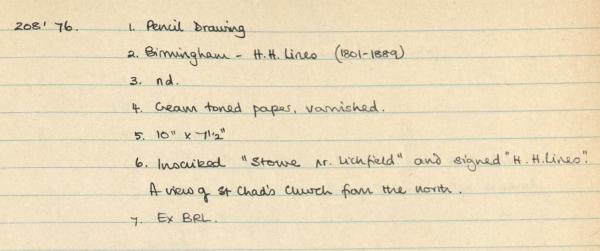 208' 76. 1. Pencil Drawing
2. Birmingham - H.H. Lines (1801-1889)
3. nd.
4. Cream toned paper, varnished.
5. 10" x 7 1/2"
6. Inscribed "Stowe nr. Lichfield" and signed "H. H. Lines".
A view of St Chad's Church from the north.
7. Ex BRL.